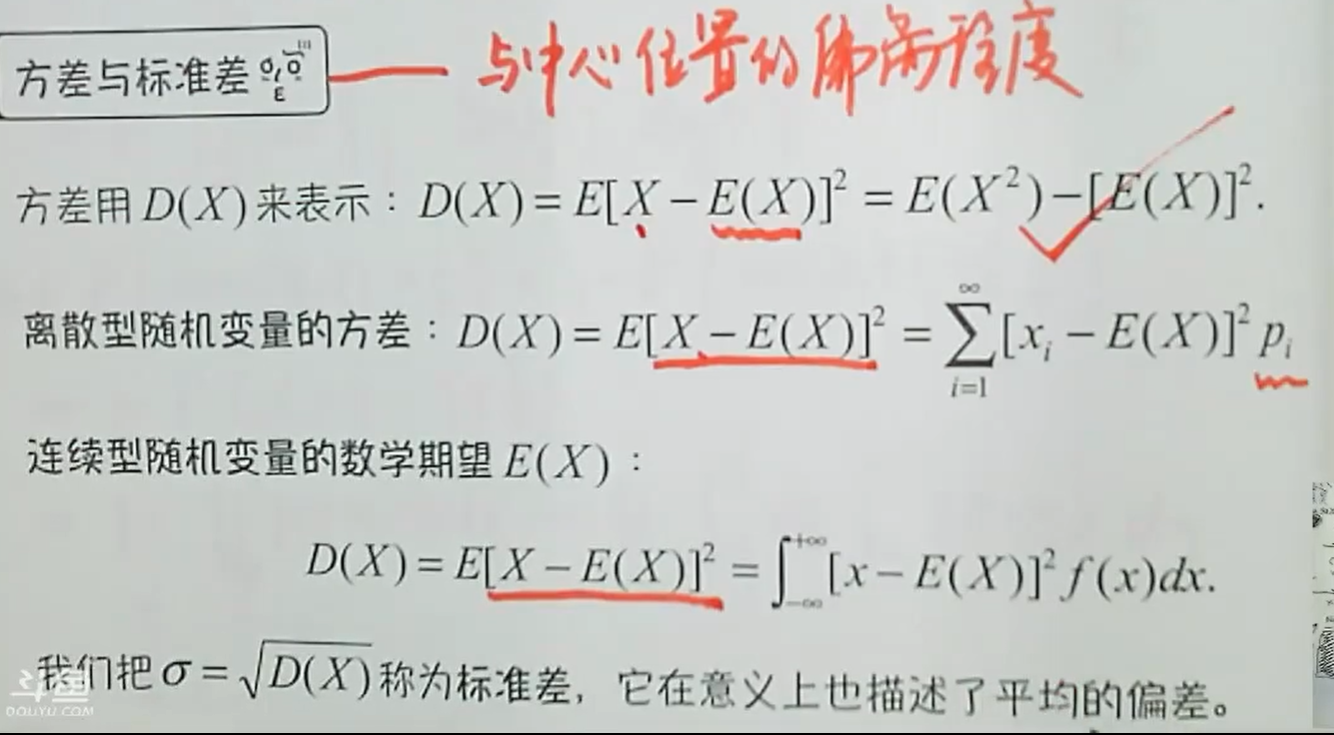 方差与标准差
与中心位置的偏离程度
方差用 D(X) 来表示：D(X) = E[X − E(X)]² = E(X²) − [E(X)]².
离散型随机变量的方差：D(X) = E[X − E(X)]² = ∑_{i=1}^{∞} [x_i − E(X)]² p_i
连续型随机变量的数学期望 E(X)：
D(X) = E[X − E(X)]² = ∫_{−∞}^{+∞} [x − E(X)]² f(x)dx.
我们把 σ = √D(X) 称为标准差，它在意义上也描述了平均的偏差。
斗鱼
DOUYU.COM